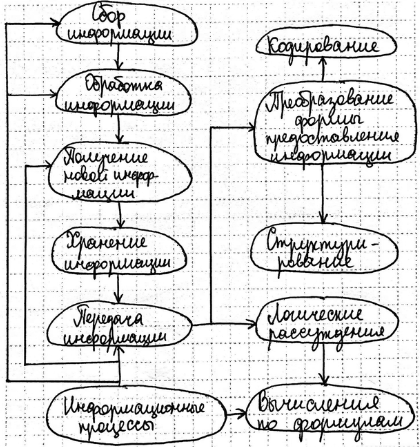 Сбор
информации
Обработка
информации
Получение
новой инфор-
мации
Хранение
информации
Передача
информации
Информационные
процессы
Кодирование
Преобразование
формы
предоставления
информации
Структури-
рование
Логические
рассуждения
Вычисления
по формулам